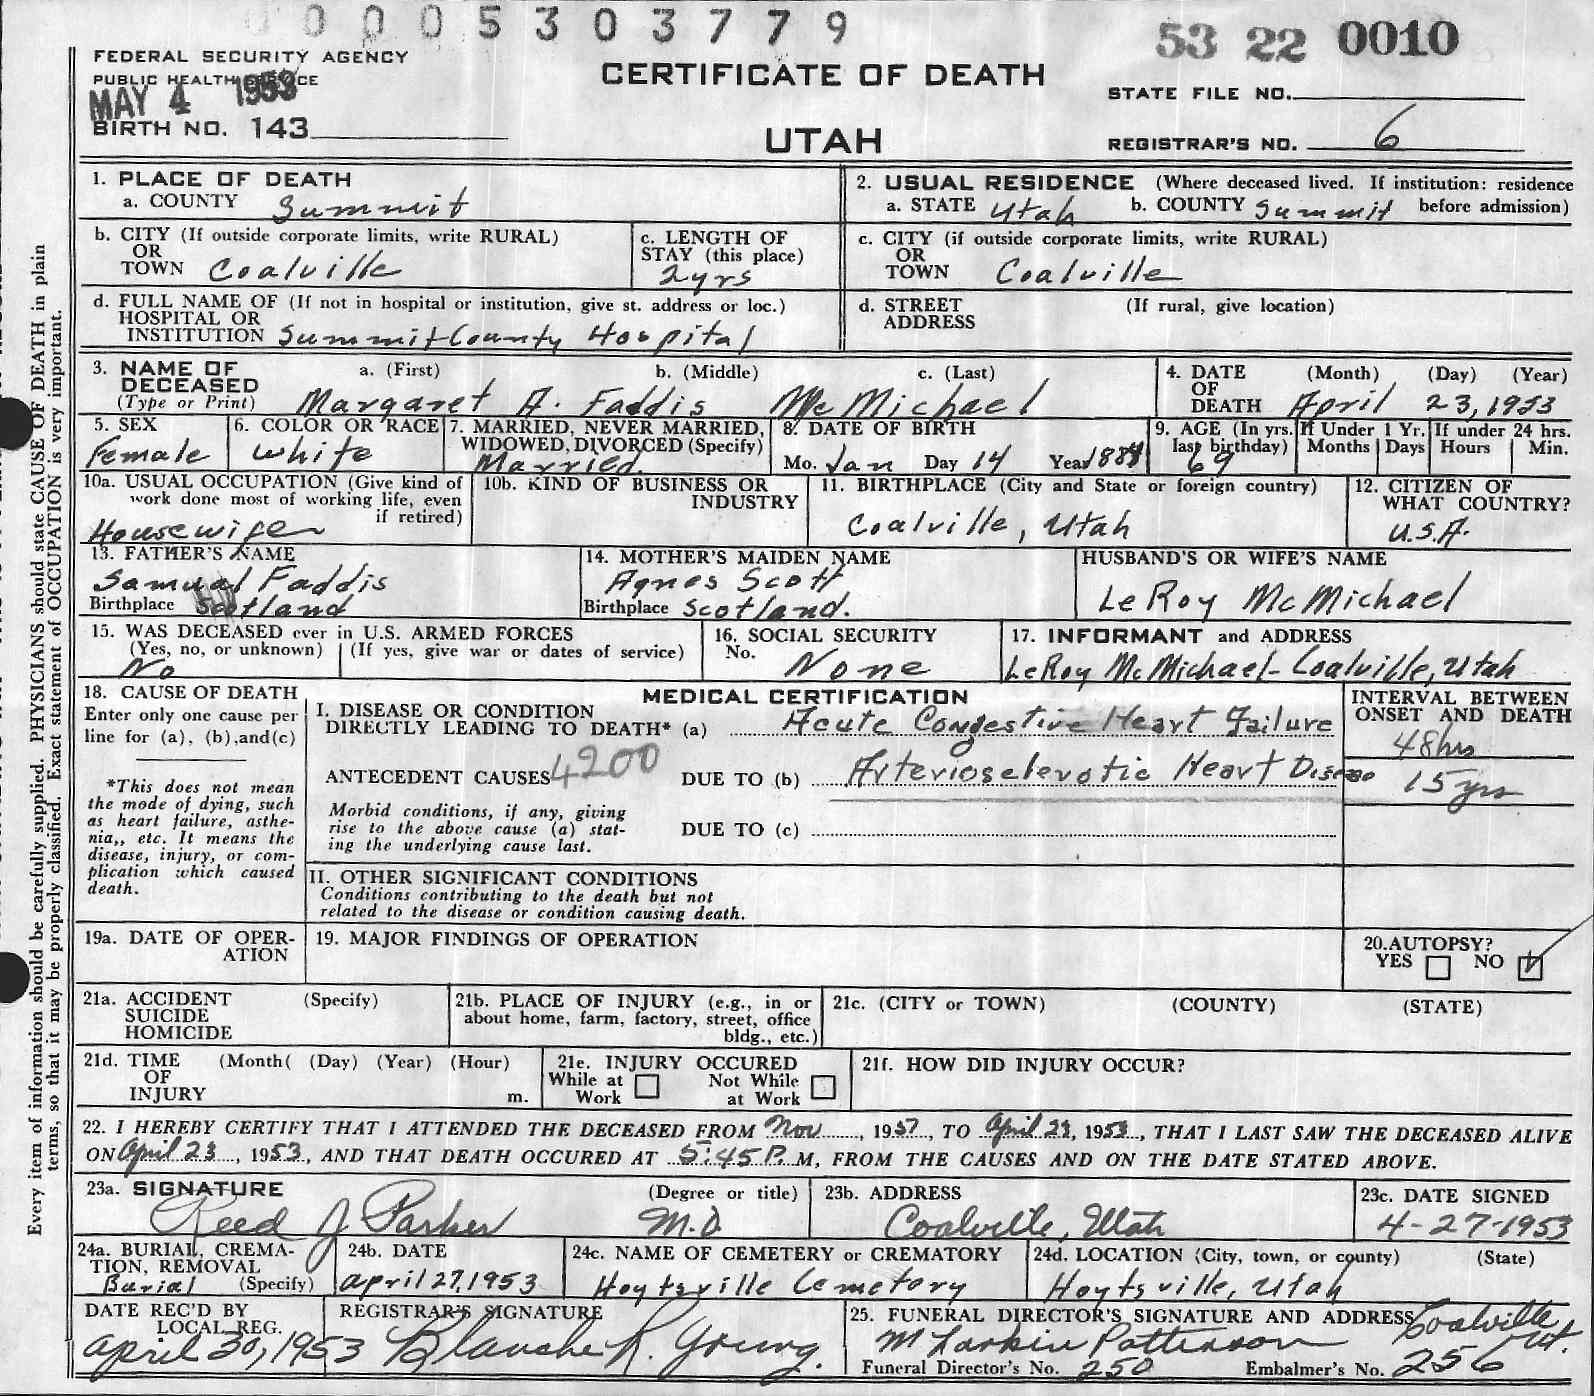 0005303779
53 22 0010
FEDERAL SECURITY AGENCY
PUBLIC HEALTH SERVICE
MAY 4 1953
BIRTH NO. 143
CERTIFICATE OF DEATH
UTAH
STATE FILE NO.
REGISTRAR'S NO. 6
1. PLACE OF DEATH
a. COUNTY Summit
2. USUAL RESIDENCE (Where deceased lived. If institution: residence
a. STATE Utah b. COUNTY Summit before admission)
b. CITY (If outside corporate limits, write RURAL)
OR
TOWN Coalville
c. LENGTH OF
STAY (this place)
2yrs
c. CITY (if outside corporate limits, write RURAL)
OR
TOWN Coalville
d. FULL NAME OF (If not in hospital or institution, give st. address or loc.)
HOSPITAL OR
INSTITUTION Summit County Hospital
d. STREET (If rural, give location)
ADDRESS
3. NAME OF a. (First) b. (Middle) c. (Last)
DECEASED
(Type or Print) Margaret A. Faddis McMichael
4. DATE (Month) (Day) (Year)
OF
DEATH April 23, 1953
5. SEX
Female
6. COLOR OR RACE
White
7. MARRIED, NEVER MARRIED,
WIDOWED, DIVORCED (Specify)
Married.
8. DATE OF BIRTH
Mo. Jan Day 14 Year 1884
9. AGE (In yrs.
last birthday)
69
If Under 1 Yr.
Months Days
If under 24 hrs.
Hours Min.
10a. USUAL OCCUPATION (Give kind of
work done most of working life, even
if retired)
Housewife
10b. KIND OF BUSINESS OR
INDUSTRY
11. BIRTHPLACE (City and State or foreign country)
Coalville, Utah
12. CITIZEN OF
WHAT COUNTRY?
U.S.A.
13. FATHER'S NAME
Samual Faddis
Birthplace Scotland
14. MOTHER'S MAIDEN NAME
Agnes Scott
Birthplace Scotland.
HUSBAND'S OR WIFE'S NAME
LeRoy McMichael
15. WAS DECEASED ever in U.S. ARMED FORCES
(Yes, no, or unknown) (If yes, give war or dates of service)
No
16. SOCIAL SECURITY
No.
None
17. INFORMANT and ADDRESS
LeRoy McMichael-Coalville, Utah
18. CAUSE OF DEATH
Enter only one cause per
line for (a), (b), and (c)
*This does not mean
the mode of dying, such
as heart failure, asthe-
nia,, etc. It means the
disease, injury, or com-
plication which caused
death.
MEDICAL CERTIFICATION
I. DISEASE OR CONDITION
DIRECTLY LEADING TO DEATH* (a) Acute Congestive Heart Failure
ANTECEDENT CAUSES 4200 DUE TO (b) Arteriosclerotic Heart Disease
Morbid conditions, if any, giving
rise to the above cause (a) stat-
ing the underlying cause last.
DUE TO (c)
INTERVAL BETWEEN
ONSET AND DEATH
48hrs
15 yrs
II. OTHER SIGNIFICANT CONDITIONS
Conditions contributing to the death but not
related to the disease or condition causing death.
19a. DATE OF OPER-
ATION
19. MAJOR FINDINGS OF OPERATION
20. AUTOPSY?
YES NO
21a. ACCIDENT (Specify)
SUICIDE
HOMICIDE
21b. PLACE OF INJURY (e.g., in or
about home, farm, factory, street, office
bldg., etc.)
21c. (CITY or TOWN) (COUNTY) (STATE)
21d. TIME (Month( (Day) (Year) (Hour)
OF
INJURY m.
21e. INJURY OCCURED
While at Work Not While at Work
21f. HOW DID INJURY OCCUR?
22. I HEREBY CERTIFY THAT I ATTENDED THE DECEASED FROM Nov, 1937, TO April 23, 1953, THAT I LAST SAW THE DECEASED ALIVE
ON April 23, 1953, AND THAT DEATH OCCURED AT 5:45 P. M, FROM THE CAUSES AND ON THE DATE STATED ABOVE.
23a. SIGNATURE (Degree or title)
Reed J Parker M.D.
23b. ADDRESS
Coalville, Utah
23c. DATE SIGNED
4-27-1953
24a. BURIAL, CREMA-
TION, REMOVAL
Burial (Specify)
24b. DATE
April 27, 1953
24c. NAME OF CEMETERY or CREMATORY
Hoytsville Cemetory
24d. LOCATION (City, town, or county) (State)
Hoytsville, Utah
DATE REC'D BY
LOCAL REG.
April 30, 1953
REGISTRAR'S SIGNATURE
Blanche R. Young.
25. FUNERAL DIRECTOR'S SIGNATURE AND ADDRESS Coalville Ut.
M Larkin Patterson
Funeral Director's No. 250 Embalmer's No. 256
Every item of information should be carefully supplied. PHYSICIANS should state CAUSE OF DEATH in plain
terms, so that it may be properly classified. Exact statement of OCCUPATION is very important.